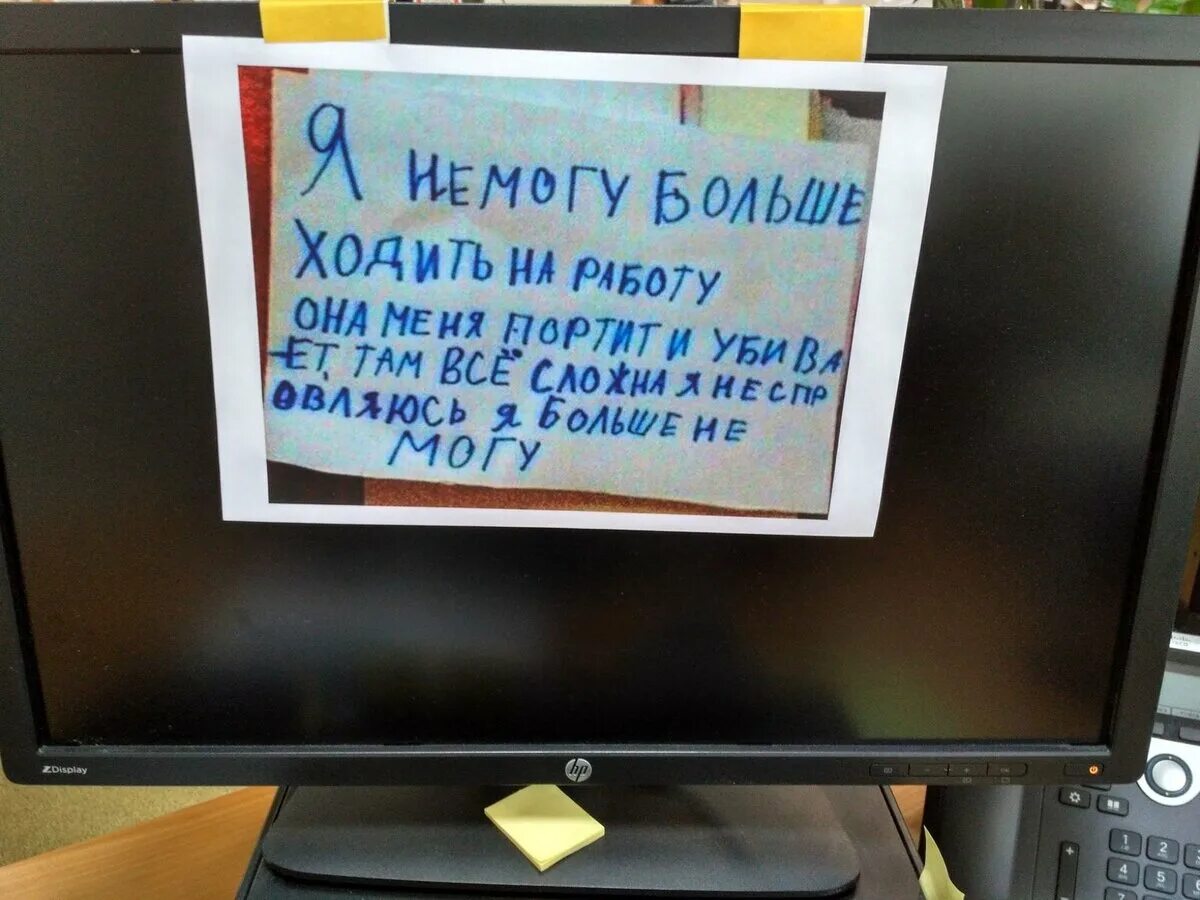 Я НЕМОГУ БОЛЬШЕ
ХОДИТЬ НА РАБОТУ
ОНА МЕНЯ ПОРТИТ И УБИВА
-ЕТ, ТАМ ВСЁ СЛОЖНА Я НЕ СПР
ОВЛЯЮСЬ Я БОЛЬШЕ НЕ
МОГУ
ZDisplay
hp
1 2 3
4 5 6
7 8